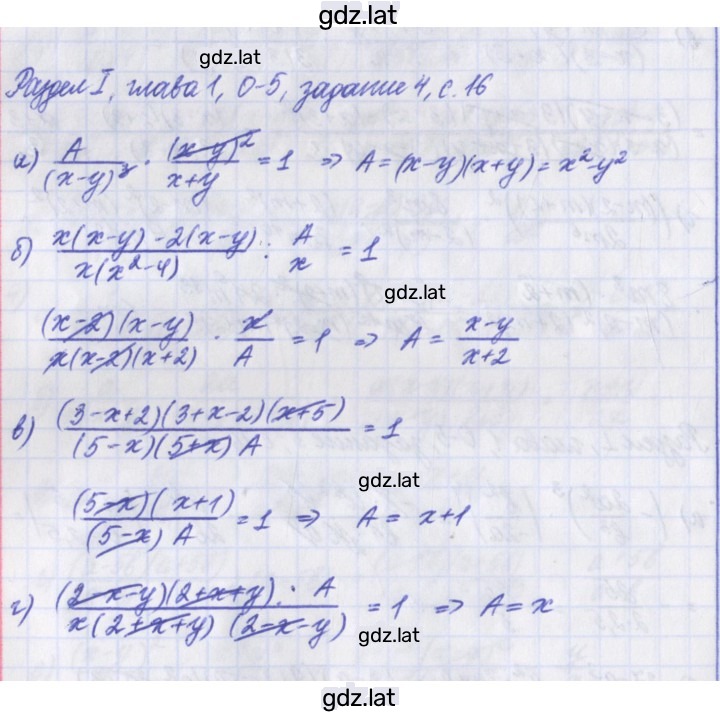 gdz.lat
gdz.lat
Раздел I, глава 1, О-5, задание 4, с. 16
а) A/(x-y)³ · (x-y)²/(x+y) = 1 ⇒ A = (x-y)(x+y) = x²-y²
б) (x(x-y) - 2(x-y))/(x(x²-4)) : A/x = 1
gdz.lat
((x-2)(x-y))/(x(x-2)(x+2)) · x/A = 1 ⇒ A = (x-y)/(x+2)
в) ((3-x+2)(3+x-2)(x+5))/((5-x)(5+x)A) = 1
gdz.lat
((5-x)(x+1))/((5-x)A) = 1 ⇒ A = x+1
г) ((2-x-y)(2+x+y) · A)/(x(2+x+y)(2-x-y)) = 1 ⇒ A = x
gdz.lat
gdz.lat